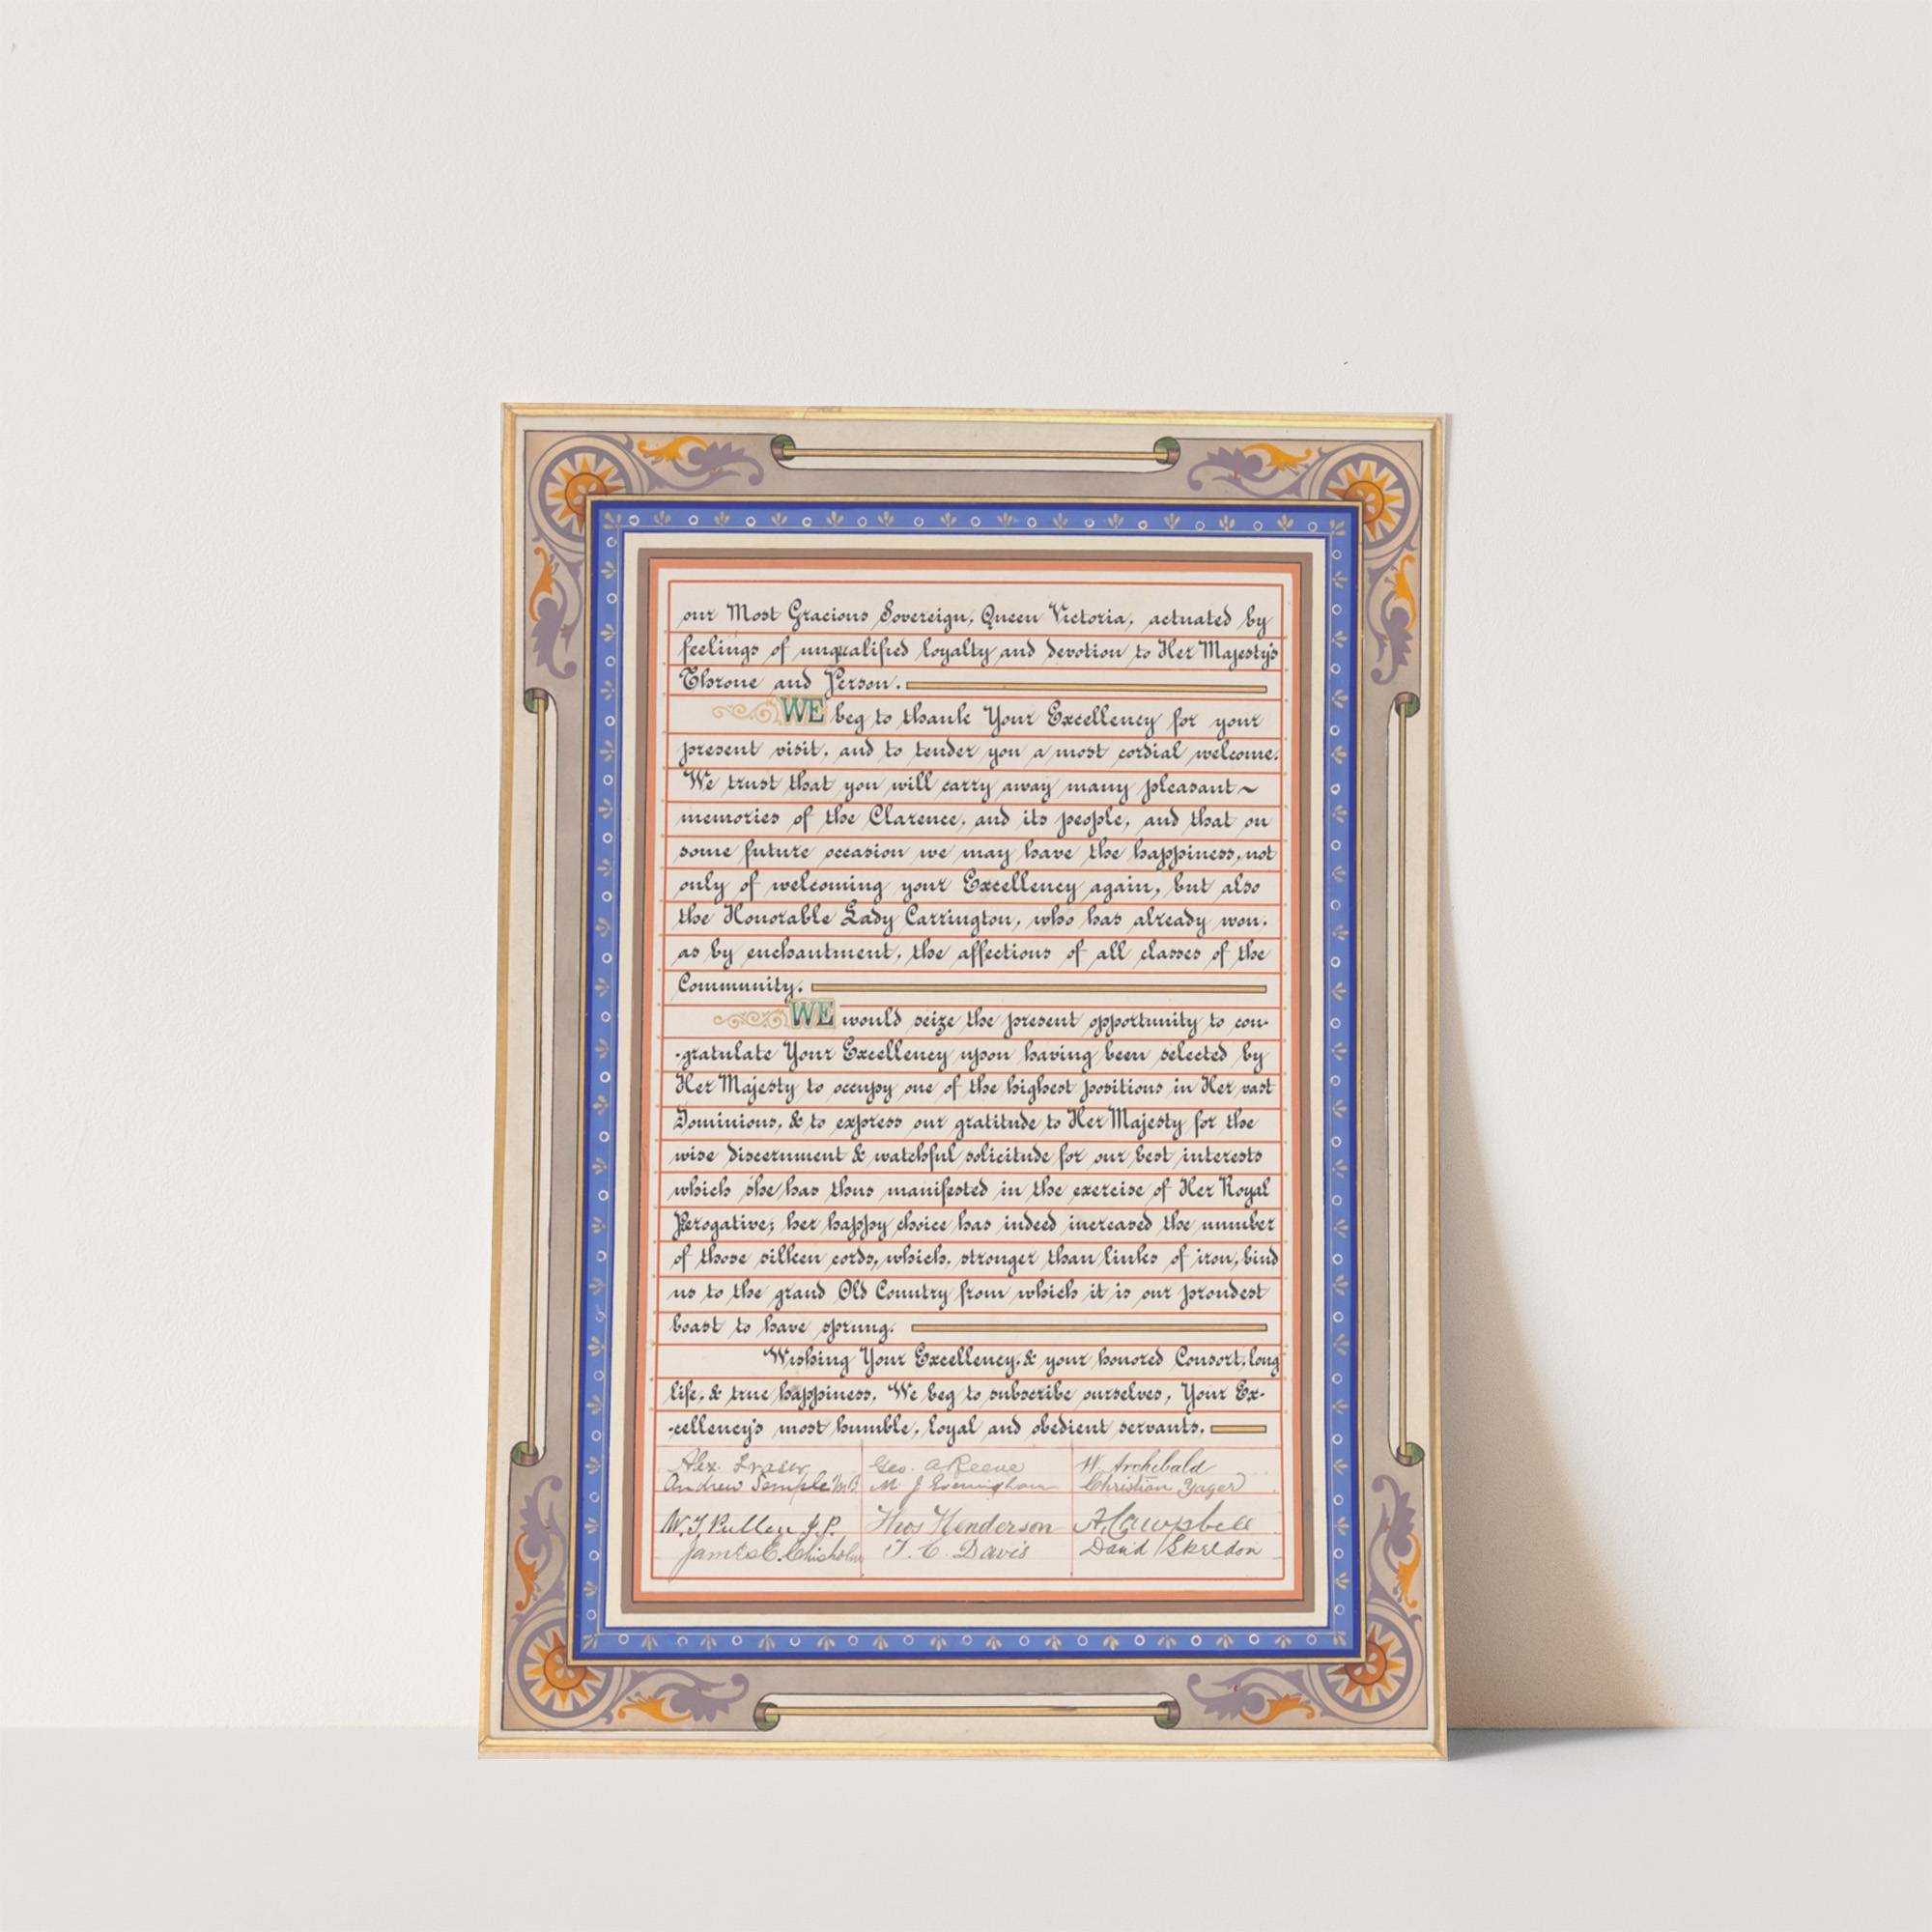 our Most Gracious Sovereign, Queen Victoria, actuated by
feelings of unqualified loyalty and devotion to Her Majesty's
Throne and Person.
WE beg to thank Your Excellency for your
present visit, and to tender you a most cordial welcome.
We trust that you will carry away many pleasant ~
memories of the Clarence, and its people, and that on
some future occasion we may have the happiness, not
only of welcoming your Excellency again, but also
the Honorable Lady Carrington, who has already won,
as by enchantment, the affections of all classes of the
Community.
WE would seize the present opportunity to con-
-gratulate Your Excellency upon having been selected by
Her Majesty to occupy one of the highest positions in Her vast
Dominions, & to express our gratitude to Her Majesty for the
wise discernment & watchful solicitude for our best interests
which she has thus manifested in the exercise of Her Royal
Perogative; her happy choice has indeed increased the number
of those silken cords, which, stronger than links of iron, bind
us to the grand Old Country from which it is our proudest
boast to have sprung.
Wishing Your Excellency, & your honored Consort, long
life, & true happiness, We beg to subscribe ourselves, Your Ex-
-cellency's most humble, loyal and obedient servants.
Alex. Fraser Geo. A Reeve W. Archibald
Andrew Semple MB M J Everingham Christian Yager
W. T. Pullen J.P. Thos Henderson A. Campbell
James E. Chisholm T. C. Davis David Skeldon